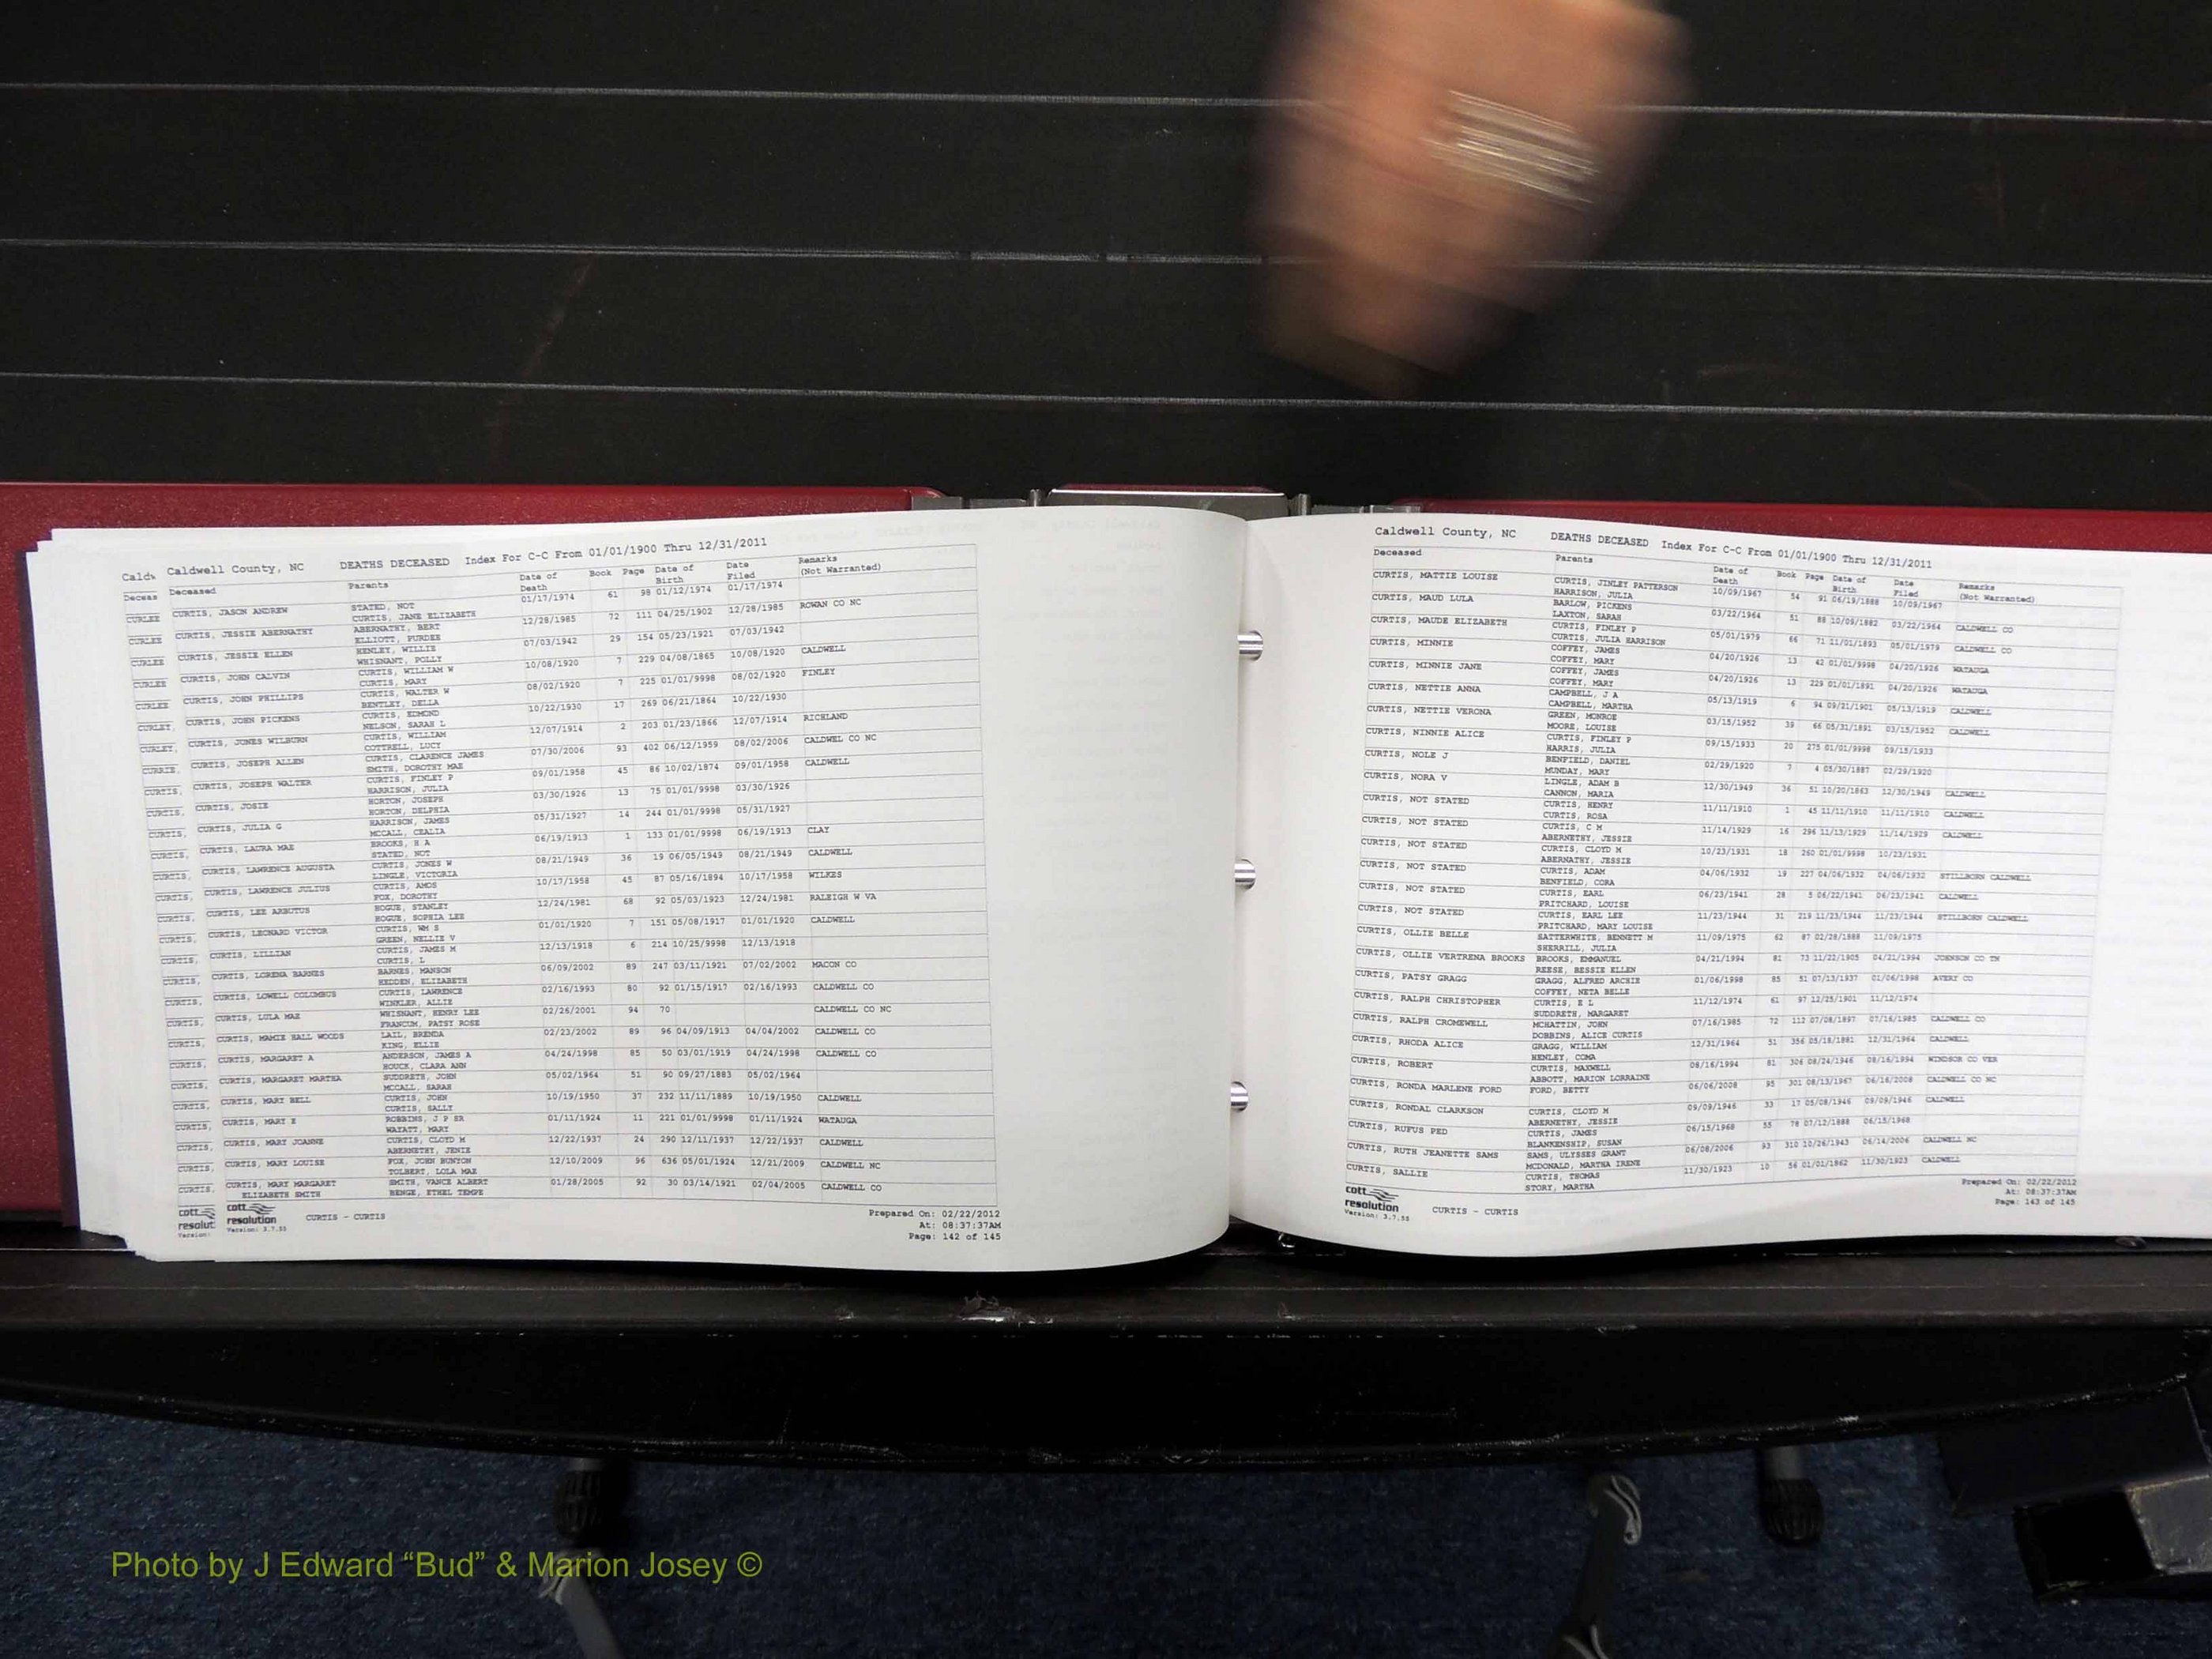 Caldwell County, NC DEATHS DECEASED Index For C-C From 01/01/1900 Thru 12/31/2011
Deceased Parents Date of Death Book Page Date of Birth Date Filed Remarks (Not Warranted)
CURTIS, JASON ANDREW STATED, NOT 01/17/1974 61 98 01/12/1974 01/17/1974
CURTIS, JANE ELIZABETH
CURTIS, JESSIE ABERNATHY ABERNATHY, BERT 12/28/1985 72 111 04/25/1902 12/28/1985 ROWAN CO NC
ELLIOTT, PURDEE
CURTIS, JESSIE ELLEN HENLEY, WILLIE 07/03/1942 29 154 05/23/1921 07/03/1942
WHISNANT, POLLY
CURTIS, JOHN CALVIN CURTIS, WILLIAM W 10/08/1920 7 229 04/08/1865 10/08/1920 CALDWELL
CURTIS, MARY
CURTIS, JOHN PHILLIPS CURTIS, WALTER W 08/02/1920 7 225 01/01/9998 08/02/1920 FINLEY
BENTLEY, DELLA
CURTIS, JOHN PICKENS CURTIS, EDMOND 10/22/1930 17 269 06/21/1864 10/22/1930
NELSON, SARAH L
CURTIS, JONES WILBURN CURTIS, WILLIAM 12/07/1914 2 203 01/23/1866 12/07/1914 RICHLAND
COTTRELL, LUCY
CURTIS, JOSEPH ALLEN CURTIS, CLARENCE JAMES 07/30/2006 93 402 06/12/1959 08/02/2006 CALDWEL CO NC
SMITH, DOROTHY MAE
CURTIS, JOSEPH WALTER CURTIS, FINLEY P 09/01/1958 45 86 10/02/1874 09/01/1958 CALDWELL
HARRISON, JULIA
CURTIS, JOSIE HORTON, JOSEPH 03/30/1926 13 75 01/01/9998 03/30/1926
HORTON, DELPHIA
CURTIS, JULIA G HARRISON, JAMES 05/31/1927 14 244 01/01/9998 05/31/1927
MCCALL, CEALIA
CURTIS, LAURA MAE BROOKS, H A 06/19/1913 1 133 01/01/9998 06/19/1913 CLAY
STATED, NOT
CURTIS, LAWRENCE AUGUSTA CURTIS, JONES W 08/21/1949 36 19 06/05/1949 08/21/1949 CALDWELL
LINGLE, VICTORIA
CURTIS, LAWRENCE JULIUS CURTIS, AMOS 10/17/1958 45 87 05/16/1894 10/17/1958 WILKES
FOX, DOROTHY
CURTIS, LEE ARBUTUS HOGUE, STANLEY 12/24/1981 68 92 05/03/1923 12/24/1981 RALEIGH W VA
HOGUE, SOPHIA LEE
CURTIS, LEONARD VICTOR CURTIS, WM S 01/01/1920 7 151 05/08/1917 01/01/1920 CALDWELL
GREEN, NELLIE V
CURTIS, LILLIAN CURTIS, JAMES M 12/13/1918 6 214 10/25/9998 12/13/1918
CURTIS, L
CURTIS, LORENA BARNES BARNES, MANSON 06/09/2002 89 247 03/11/1921 07/02/2002 MACON CO
HEDDEN, ELIZABETH
CURTIS, LOWELL COLUMBUS CURTIS, LAWRENCE 02/16/1993 80 92 01/15/1917 02/16/1993 CALDWELL CO
WINKLER, ALLIE
CURTIS, LULA MAE WHISNANT, HENRY LEE 02/26/2001 94 70 CALDWELL CO NC
FRANCUM, PATSY ROSE
CURTIS, MAMIE HALL WOODS LAIL, BRENDA 02/23/2002 89 96 04/09/1913 04/04/2002 CALDWELL CO
KING, ELLIE
CURTIS, MARGARET A ANDERSON, JAMES A 04/24/1998 85 50 03/01/1919 04/24/1998 CALDWELL CO
HOUCK, CLARA ANN
CURTIS, MARGARET MARTHA SUDDRETH, JOHN 05/02/1964 51 90 09/27/1883 05/02/1964
MCCALL, SARAH
CURTIS, MARY BELL CURTIS, JOHN 10/19/1950 37 232 11/11/1889 10/19/1950 CALDWELL
CURTIS, SALLY
CURTIS, MARY E ROBBINS, J P SR 01/11/1924 11 221 01/01/9998 01/11/1924 WATAUGA
WAYATT, MARY
CURTIS, MARY JOANNE CURTIS, CLOYD M 12/22/1937 24 290 12/11/1937 12/22/1937 CALDWELL
ABERNETHY, JENIE
CURTIS, MARY LOUISE FOX, JOHN BUNYON 12/10/2009 96 636 05/01/1924 12/21/2009 CALDWELL NC
TOLBERT, LOLA MAE
CURTIS, MARY MARGARET SMITH, VANCE ALBERT 01/28/2005 92 30 03/14/1921 02/04/2005 CALDWELL CO
ELIZABETH SMITH BENGE, ETHEL TEMPE
cott resolution
Version: 3.7.55
CURTIS - CURTIS
Prepared On: 02/22/2012
At: 08:37:37AM
Page: 142 of 145
Caldwell County, NC DEATHS DECEASED Index For C-C From 01/01/1900 Thru 12/31/2011
Deceased Parents Date of Death Book Page Date of Birth Date Filed Remarks (Not Warranted)
CURTIS, MATTIE LOUISE CURTIS, JINLEY PATTERSON 10/09/1967 54 91 06/19/1888 10/09/1967
HARRISON, JULIA
CURTIS, MAUD LULA BARLOW, PICKENS 03/22/1964 51 88 10/09/1882 03/22/1964 CALDWELL CO
LAXTON, SARAH
CURTIS, MAUDE ELIZABETH CURTIS, FINLEY P 05/01/1979 66 71 11/01/1893 05/01/1979 CALDWELL CO
CURTIS, JULIA HARRISON
CURTIS, MINNIE COFFEY, JAMES 04/20/1926 13 42 01/01/9998 04/20/1926 WATAUGA
COFFEY, MARY
CURTIS, MINNIE JANE COFFEY, JAMES 04/20/1926 13 229 01/01/1891 04/20/1926 WATAUGA
COFFEY, MARY
CURTIS, NETTIE ANNA CAMPBELL, J A 05/13/1919 6 94 09/21/1901 05/13/1919 CALDWELL
CAMPBELL, MARTHA
CURTIS, NETTIE VERONA GREEN, MONROE 03/15/1952 39 66 05/31/1891 03/15/1952 CALDWELL
MOORE, LOUISE
CURTIS, NINNIE ALICE CURTIS, FINLEY P 09/15/1933 20 275 01/01/9998 09/15/1933
HARRIS, JULIA
CURTIS, NOLE J BENFIELD, DANIEL 02/29/1920 7 4 05/30/1887 02/29/1920
MUNDAY, MARY
CURTIS, NORA V LINGLE, ADAM B 12/30/1949 36 51 10/20/1863 12/30/1949 CALDWELL
CANNON, MARIA
CURTIS, NOT STATED CURTIS, HENRY 11/11/1910 1 45 11/11/1910 11/11/1910 CALDWELL
CURTIS, ROSA
CURTIS, NOT STATED CURTIS, C M 11/14/1929 16 296 11/13/1929 11/14/1929 CALDWELL
ABERNETHY, JESSIE
CURTIS, NOT STATED CURTIS, CLOYD M 10/23/1931 18 260 01/01/9998 10/23/1931
ABERNATHY, JESSIE
CURTIS, NOT STATED CURTIS, ADAM 04/06/1932 19 227 04/06/1932 04/06/1932 STILLBORN CALDWELL
BENFIELD, CORA
CURTIS, NOT STATED CURTIS, EARL 06/23/1941 28 5 06/22/1941 06/23/1941 CALDWELL
PRITCHARD, LOUISE
CURTIS, NOT STATED CURTIS, EARL LEE 11/23/1944 31 219 11/23/1944 11/23/1944 STILLBORN CALDWELL
PRITCHARD, MARY LOUISE
CURTIS, OLLIE BELLE SATTERWHITE, BENNETT M 11/09/1975 62 87 02/28/1888 11/09/1975
SHERRILL, JULIA
CURTIS, OLLIE VERTRENA BROOKS BROOKS, EMMANUEL 04/21/1994 81 73 11/22/1905 04/21/1994 JOHNSON CO TN
REESE, BESSIE ELLEN
CURTIS, PATSY GRAGG GRAGG, ALFRED ARCHIE 01/06/1998 85 51 07/13/1937 01/06/1998 AVERY CO
COFFEY, NETA BELLE
CURTIS, RALPH CHRISTOPHER CURTIS, E L 11/12/1974 61 97 12/25/1901 11/12/1974
SUDDRETH, MARGARET
CURTIS, RALPH CROMEWELL MCHATTIN, JOHN 07/16/1985 72 112 07/08/1897 07/16/1985 CALDWELL CO
DOBBINS, ALICE CURTIS
CURTIS, RHODA ALICE GRAGG, WILLIAM 12/31/1964 51 356 05/18/1881 12/31/1964 CALDWELL
HENLEY, COMA
CURTIS, ROBERT CURTIS, MAXWELL 08/16/1994 81 306 08/24/1946 08/16/1994 WINDSOR CO VER
ABBOTT, MARION LORRAINE
CURTIS, RONDA MARLENE FORD FORD, BETTY 06/06/2008 95 301 08/13/1967 06/16/2008 CALDWELL CO NC
CURTIS, RONDAL CLARKSON CURTIS, CLOYD M 09/09/1946 33 17 05/08/1946 09/09/1946 CALDWELL
ABERNETHY, JESSIE
CURTIS, RUFUS PED CURTIS, JAMES 06/15/1968 55 78 07/12/1888 06/15/1968
BLANKENSHIP, SUSAN
CURTIS, RUTH JEANETTE SAMS SAMS, ULYSSES GRANT 06/08/2006 93 310 10/26/1943 06/14/2006 CALDWELL NC
MCDONALD, MARTHA IRENE
CURTIS, SALLIE CURTIS, THOMAS 11/30/1923 10 56 01/01/1862 11/30/1923 CALDWELL
STORY, MARTHA
cott resolution
Version: 3.7.55
CURTIS - CURTIS
Prepared On: 02/22/2012
At: 08:37:37AM
Page: 143 of 145
Photo by J Edward “Bud” & Marion Josey ©